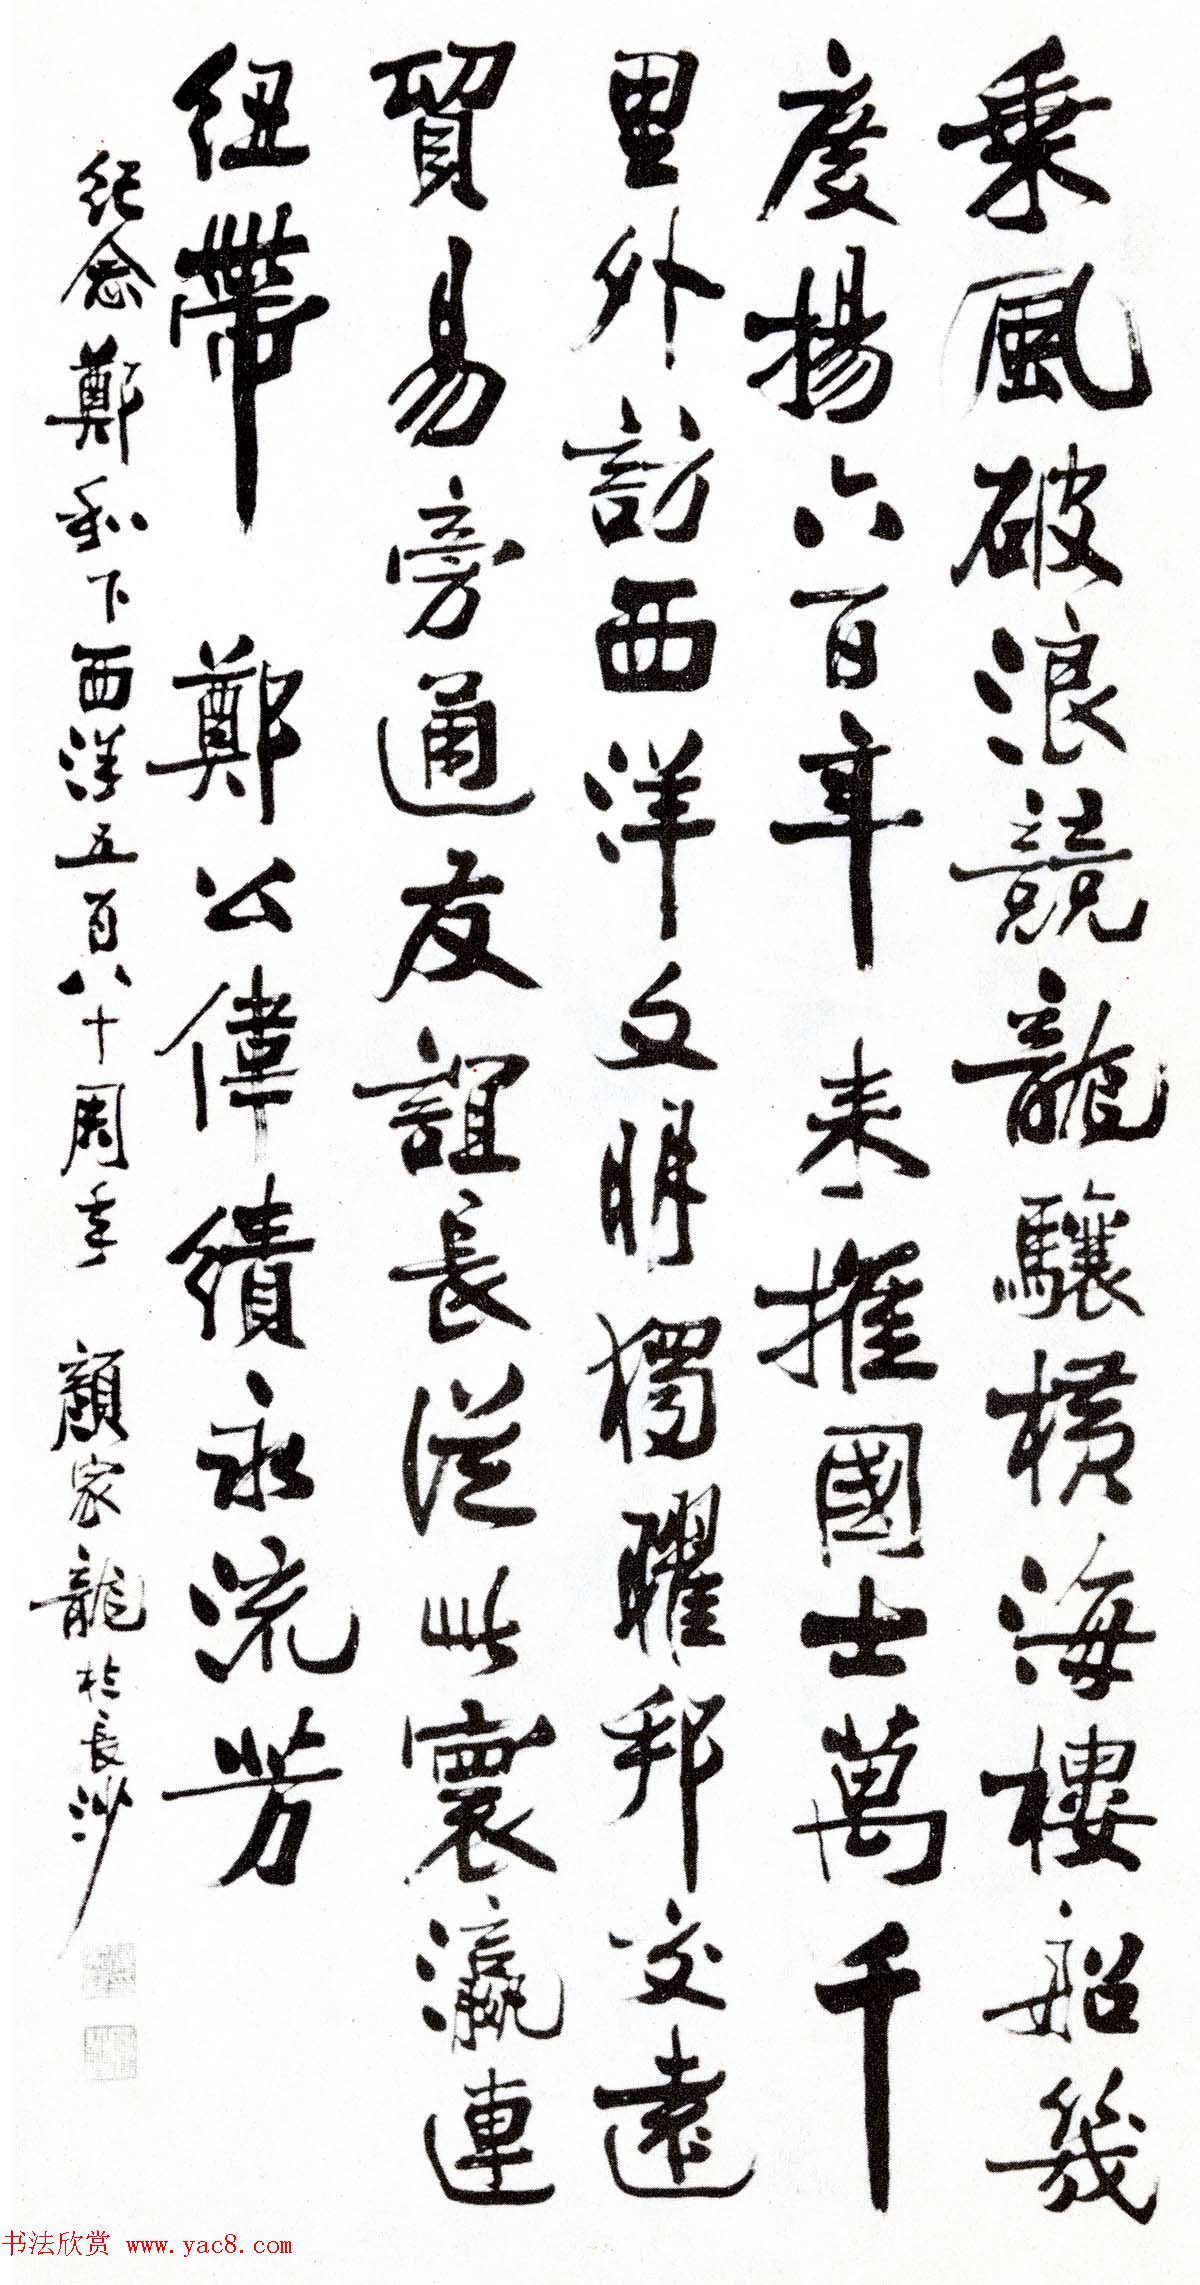 乘風破浪競龍驤橫海樓船幾
度揚六百年來推國士萬千
里外訪西洋文明獨曜邦交遠
貿易旁通友誼長從此寰瀛連
紐帶鄭公偉績永流芳
紀念鄭和下西洋五百八十周年 顏家龍於長沙
书法欣赏 www.yac8.com